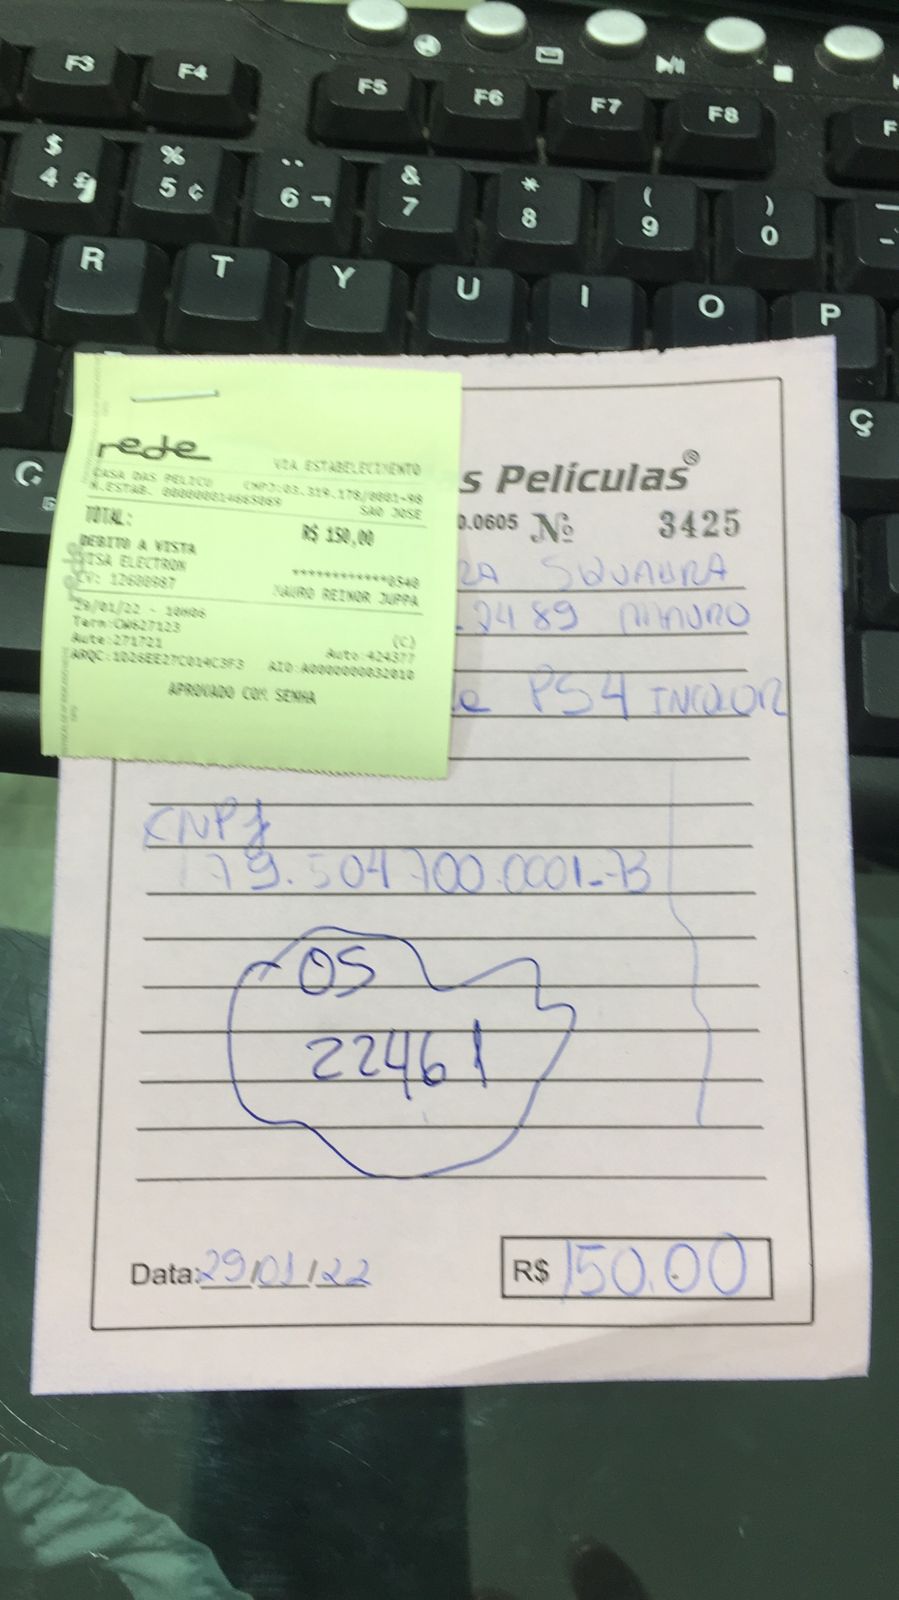 F3 F4 F5 F6 F7 F8 F
$ 4 £ % 5 ¢ ¨ 6 ¬ & 7 * 8 ( 9 ) 0 -
R T Y U I O P
Ç
rede
VIA ESTABELECIMENTO
CASA DAS PELICU CNPJ:03.319.178/0001-98
N.ESTAB. 000000014665069 SAO JOSE
TOTAL: R$ 150,00
DEBITO A VISTA
VISA ELECTRON ************0540
CV: 12600987 MAURO REINOR JUPPA
29/01/22 - 10H06
Term:CW627123 (C)
Aute:271721 Auto:424377
ARQC:1D26EE27C014C3F3 AID:A0000000032010
APROVADO COM SENHA
s Películas®
0.0605 Nº 3425
RA SQUADRA
2489 MAURO
PS4 INCOLOR
CNPJ
79.504 700.0001-73
OS
22461
Data: 29/01/22 R$ 150.00